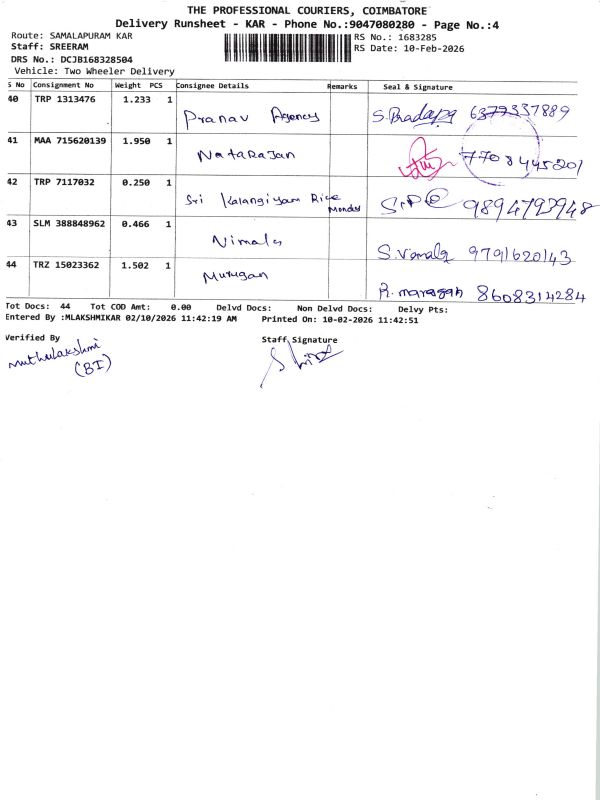 THE PROFESSIONAL COURIERS, COIMBATORE
Delivery Runsheet - KAR - Phone No.:9047080280 - Page No.:4
Route: SAMALAPURAM KAR
RS No.: 1683285
Staff: SREERAM
RS Date: 10-Feb-2026
DRS No.: DCJB168328504
Vehicle: Two Wheeler Delivery
S No Consignment No Weight PCS Consignee Details Remarks Seal & Signature
40 TRP 1313476 1.233 1 Pranav Agency S. Pradeep 6379337889
41 MAA 715620139 1.950 1 Natarajan 7708445201
42 TRP 7117032 0.250 1 Sri Kalangiyam Rice Mondy 9894793948
43 SLM 388848962 0.466 1 Nimala S. Vimala 9791620143
44 TRZ 15023362 1.502 1 Murugan R. Maragan 8608314284
Tot Docs: 44 Tot COD Amt: 0.00 Delvd Docs: Non Delvd Docs: Delvy Pts:
Entered By :MLAKSHMIKAR 02/10/2026 11:42:19 AM Printed On: 10-02-2026 11:42:51
Verified By Staff Signature
Muthulakshmi
(BI)